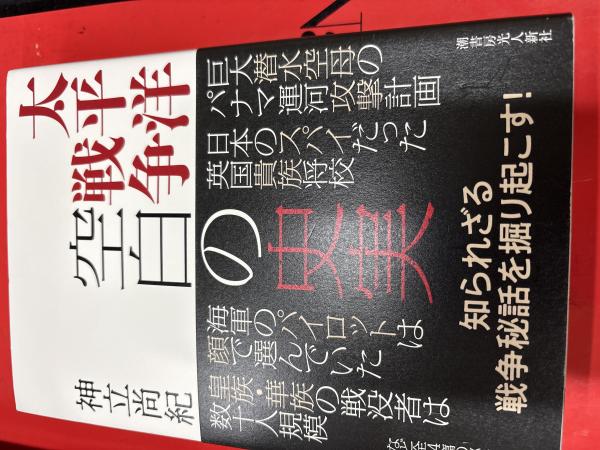 太平洋
戦争
空白
の
史実
神立尚紀
巨大潜水空母の
パナマ運河攻撃計画
日本のスパイだった
英国貴族将校
海軍のパイロットは
顔で選んでいた
皇族・華族の戦没者は
数十人規模
知られざる
戦争秘話を掘り起こす!
潮書房光人新社